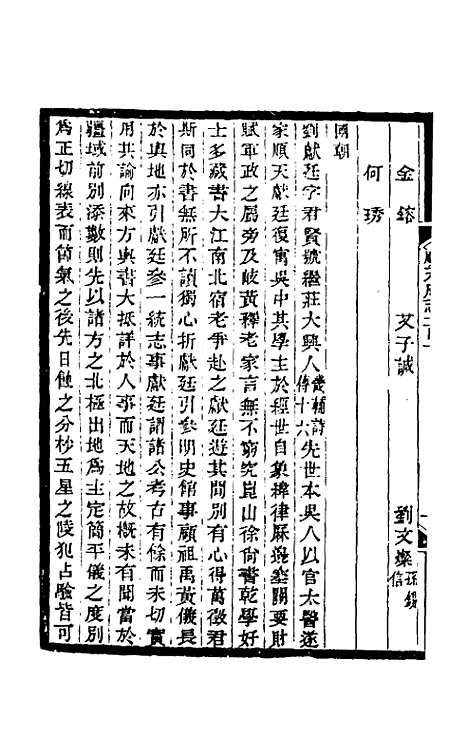 金鎔　艾子誠　劉文燦　孫錫信
何琇
國朝
劉獻廷字君賢號繼莊大興人畿輔詩傳十六先世本吳人以官太醫遂
家順天獻廷復寓吳中其學主於經世自象緯律厤邊塞關要財
賦軍政之屬旁及岐黃釋老家言無不窮究崑山徐尚書乾學好
士多藏書大江南北宿老爭赴之獻廷遊其間別有心得萬徵君
斯同於書無所不讀獨心折獻廷引參明史館事顧祖禹黃儀長
於輿地亦引獻廷參一統志事獻廷謂諸公考古有餘而未切實
用其論向來方輿書大抵詳於人事而天地之故概未有聞當於
疆域前別添數則先以諸方之北極出地爲主定簡平儀之度別
爲正切線表而節氣之後先日蝕之分杪五星之陵犯占驗皆可